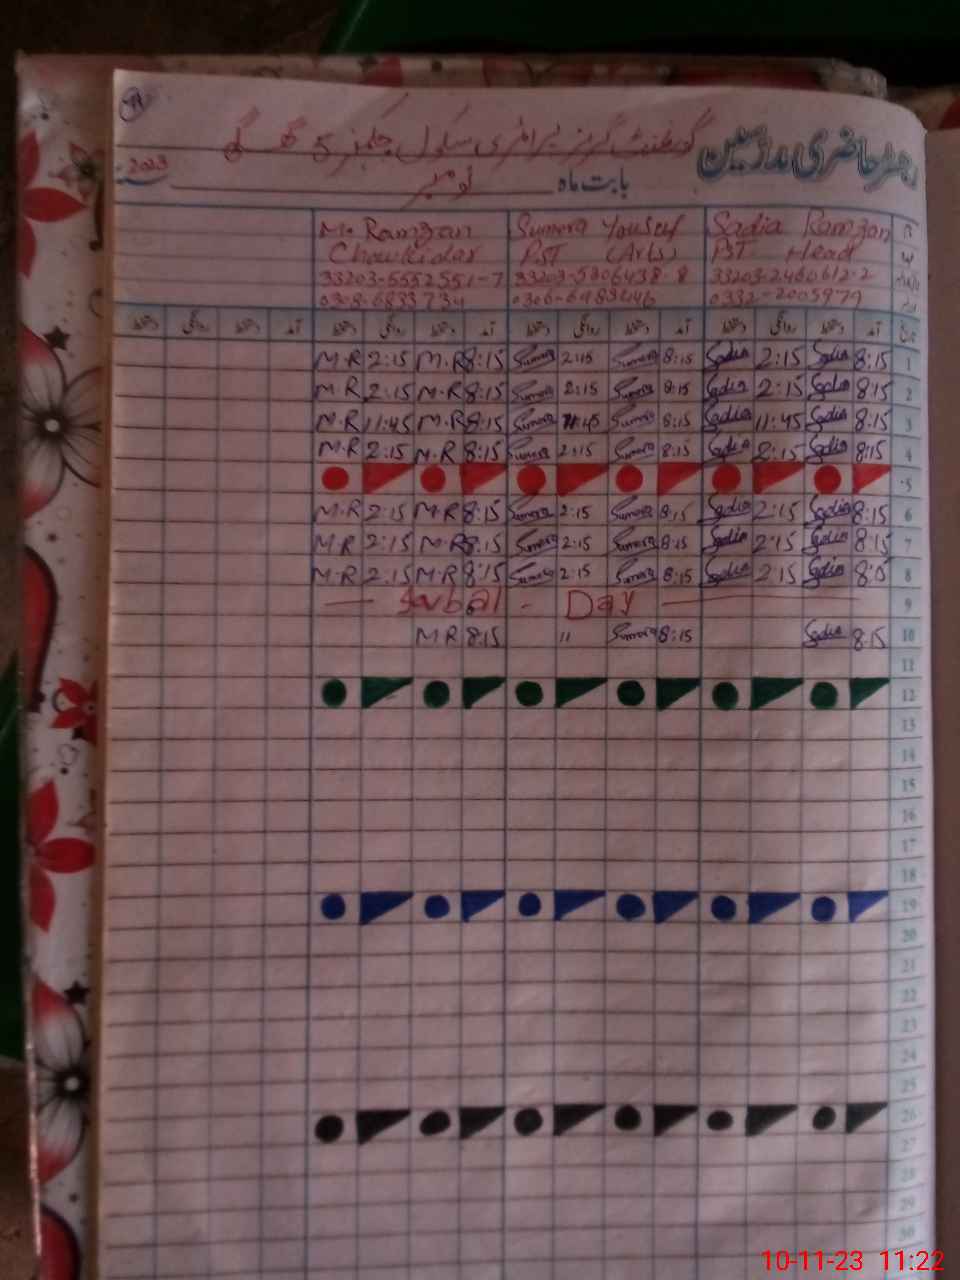 رجسٹر حاضری مدرسین
گورنمنٹ گرلز پرائمری سکول
بابت ماہ نومبر 2023
Sadia Ramzan Sumera Yousuf M. Ramzan
PST Head PST (Arts) Chowkidar
33203-2460612-2 33203-5306438-8 33203-5552551-7
0332-2005979 0308-6833734
آمد دستخط روانگی دستخط آمد دستخط روانگی دستخط آمد دستخط روانگی دستخط آمد دستخط روانگی دستخط
1 8:15 Sadia 2:15 Sadia 8:15 Sumera 2:15 Sumera 8:15 M.R 2:15 M.R
2 8:15 Sadia 2:15 Sadia 8:15 Sumera 2:15 Sumera 8:15 M.R 2:15 M.R
3 8:15 Sadia 11:45 Sadia 8:15 Sumera 11:45 Sumera 8:15 M.R 11:45 M.R
4 8:15 Sadia 2:15 Sadia 8:15 Sumera 2:15 Sumera 8:15 M.R 2:15 M.R
5
6 8:15 Sadia 2:15 Sadia 8:15 Sumera 2:15 Sumera 8:15 M.R 2:15 M.R
7 8:15 Sadia 2:15 Sadia 8:15 Sumera 2:15 Sumera 8:15 M.R 2:15 M.R
8 8:15 Sadia 2:15 Sadia 8:15 Sumera 2:15 Sumera 8:15 M.R 2:15 M.R
9 — Iqbal - Day —
10 8:15 Sadia 8:15 Sumera " 8:15 M.R
11
12
13
14
15
16
17
18
19
20
21
22
23
24
25
26
27
28
29
30
10-11-23 11:22